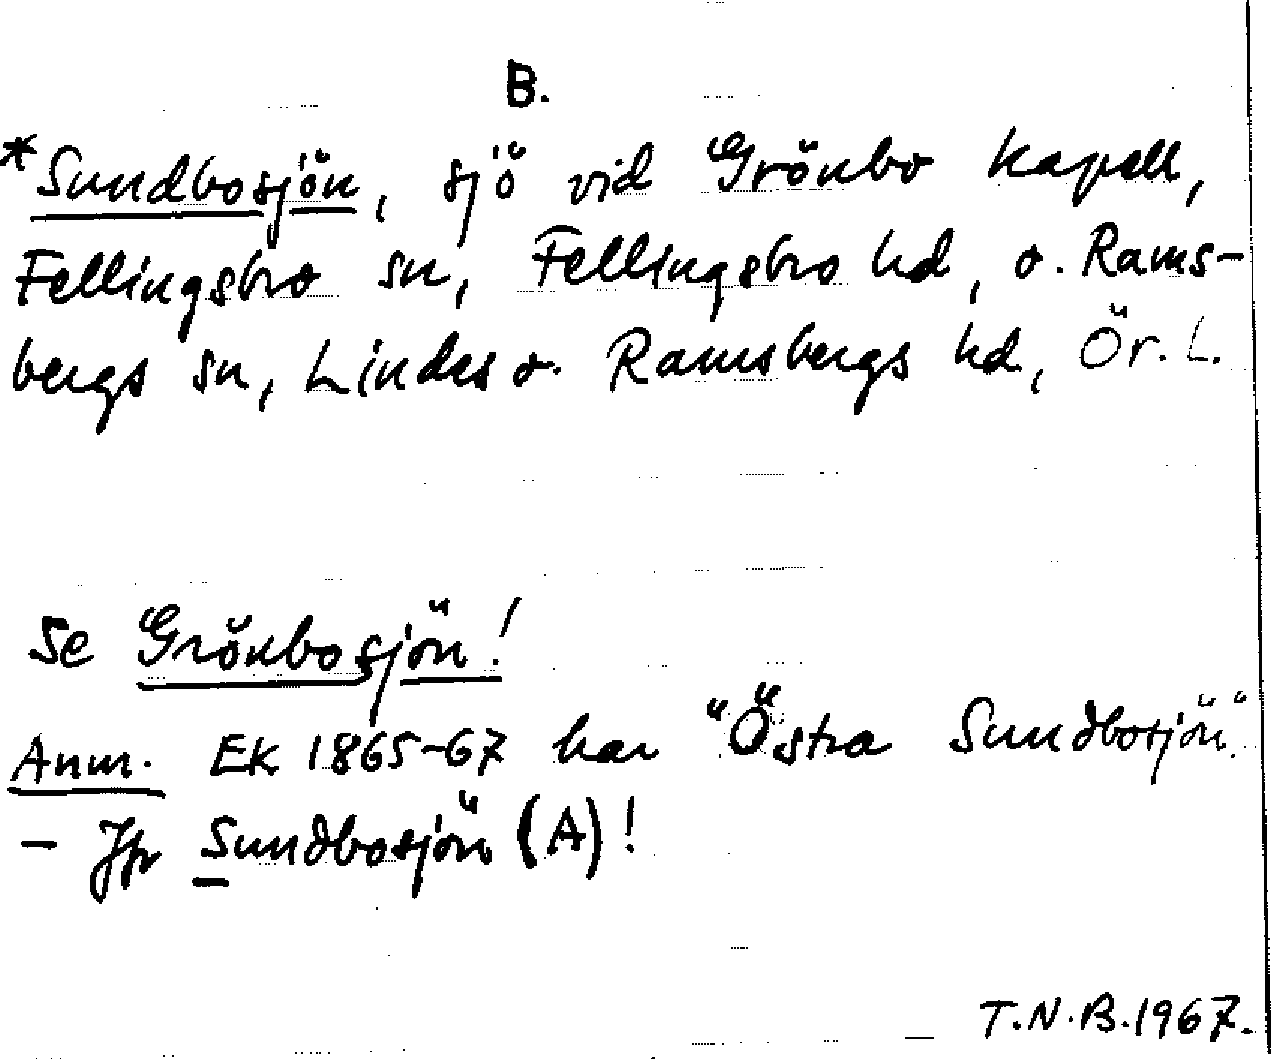 B.
*Sundbosjön, sjö vid Grönbo kapell,
Fellingsbro sn, Fellingsbro hd, o. Rams-
bergs sn, Lindes o. Ramsbergs hd, Ör. L.
Se Grönbosjön!
Anm. Ek 1865-67 har "Östra Sundbosjön".
- Jfr Sundbosjön (A)!
T.N.B. 1967.